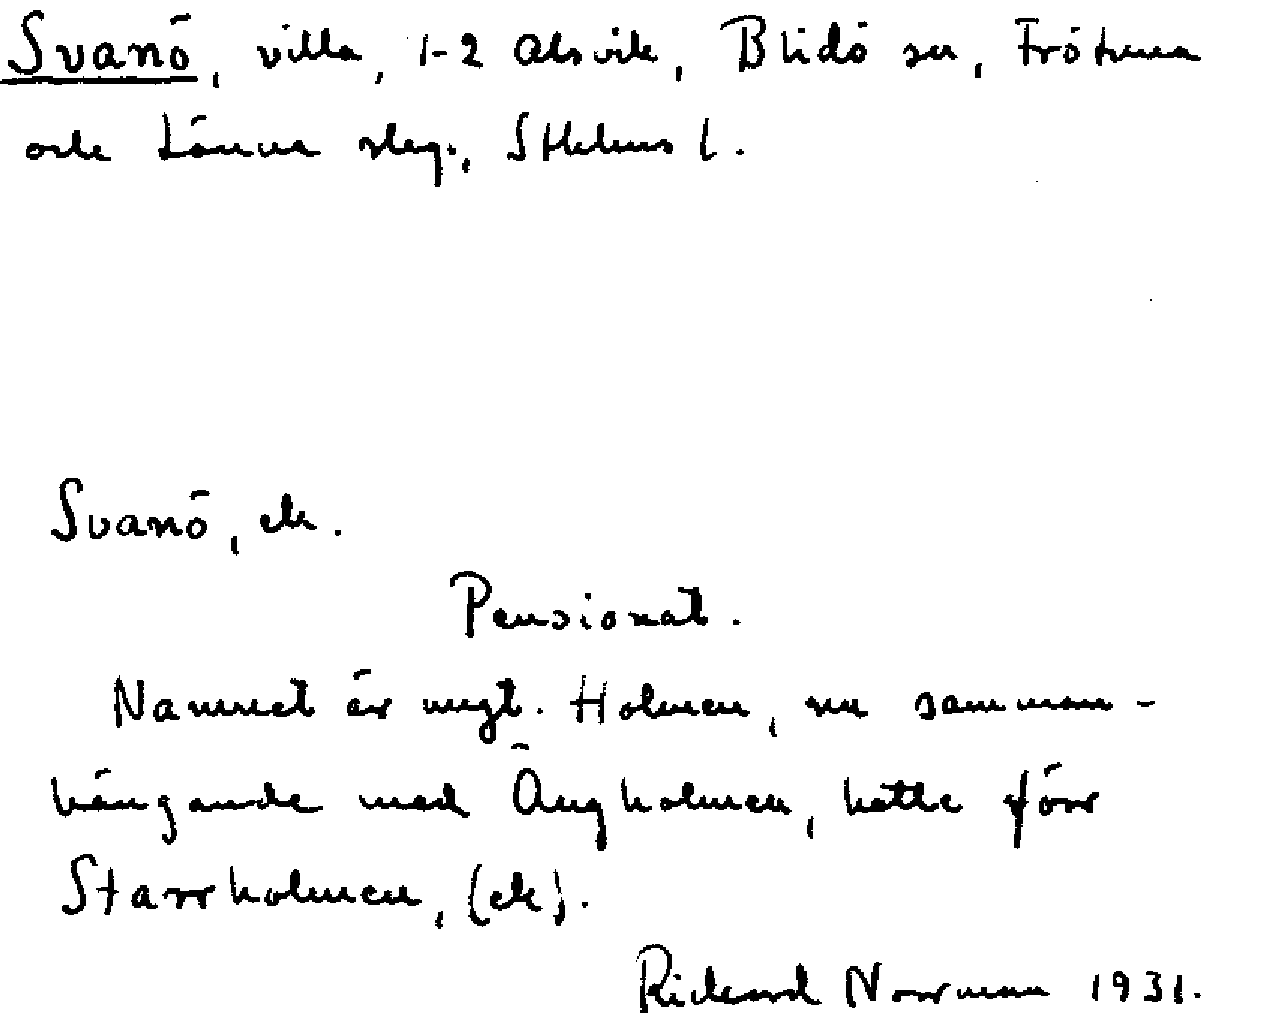 Svanö, villa, 1-2 Alsvik, Blidö sn, Frötuna
och Länna slg., Sthlms l.
Svanö, ek.
Pensionat.
Namnet är nygt. Holmen, nu samman-
hängande med Ängholmen, hette förr
Starrholmen, (ek).
Rickard Norrman 1931.